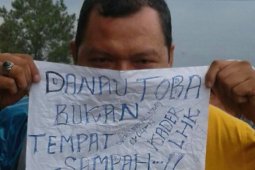 DANAU TOBA
BUKAN
TEMPAT
SAMPAH...!!
KADER
LHK